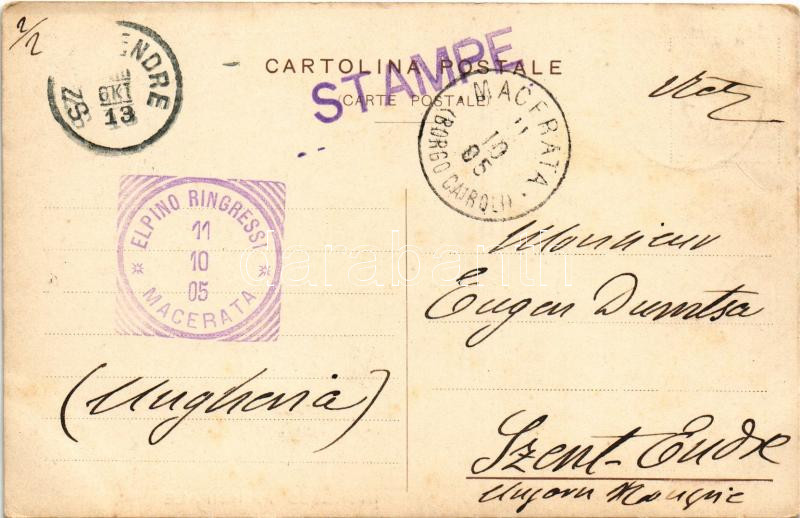 2/2
ENDRE
OKT
13
CARTOLINA POSTALE
(CARTE POSTALE)
STAMPE
MACERATA
11 10 05
(BORGO CAIROLI)
ELPINO RINGRESSI
11
10
05
MACERATA
darabanth
Monsieur
Eugen Dumtsa
(Ungheria)
Szent-Endre
Ungarn